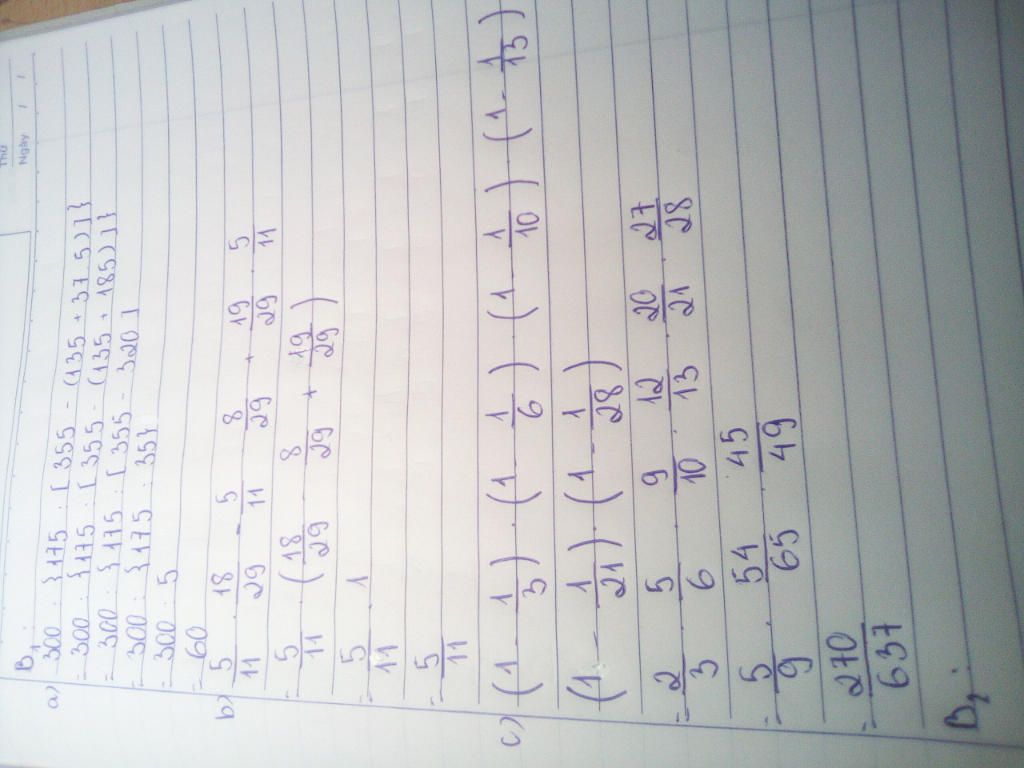 Thứ
Ngày / /
B1:
a) 300 : {175 : [355 - (135 + 37.5)]}
= 300 : {175 : [355 - (135 + 185)]}
= 300 : {175 : [355 - 320]
= 300 : {175 : 35}
= 300 : 5
= 60
b) 5/11 . 18/29 - 5/11 . 8/29 + 19/29 . 5/11
= 5/11 . (18/29 - 8/29 + 19/29)
= 5/11 . 1
= 5/11
c) (1 - 1/3) . (1 - 1/6) . (1 - 1/10) . (1 - 1/13)
(1 - 1/21) . (1 - 1/28)
= 2/3 . 5/6 . 9/10 . 12/13 . 20/21 . 27/28
= 5/9 . 54/65 . 45/49
= 270/637
B2: